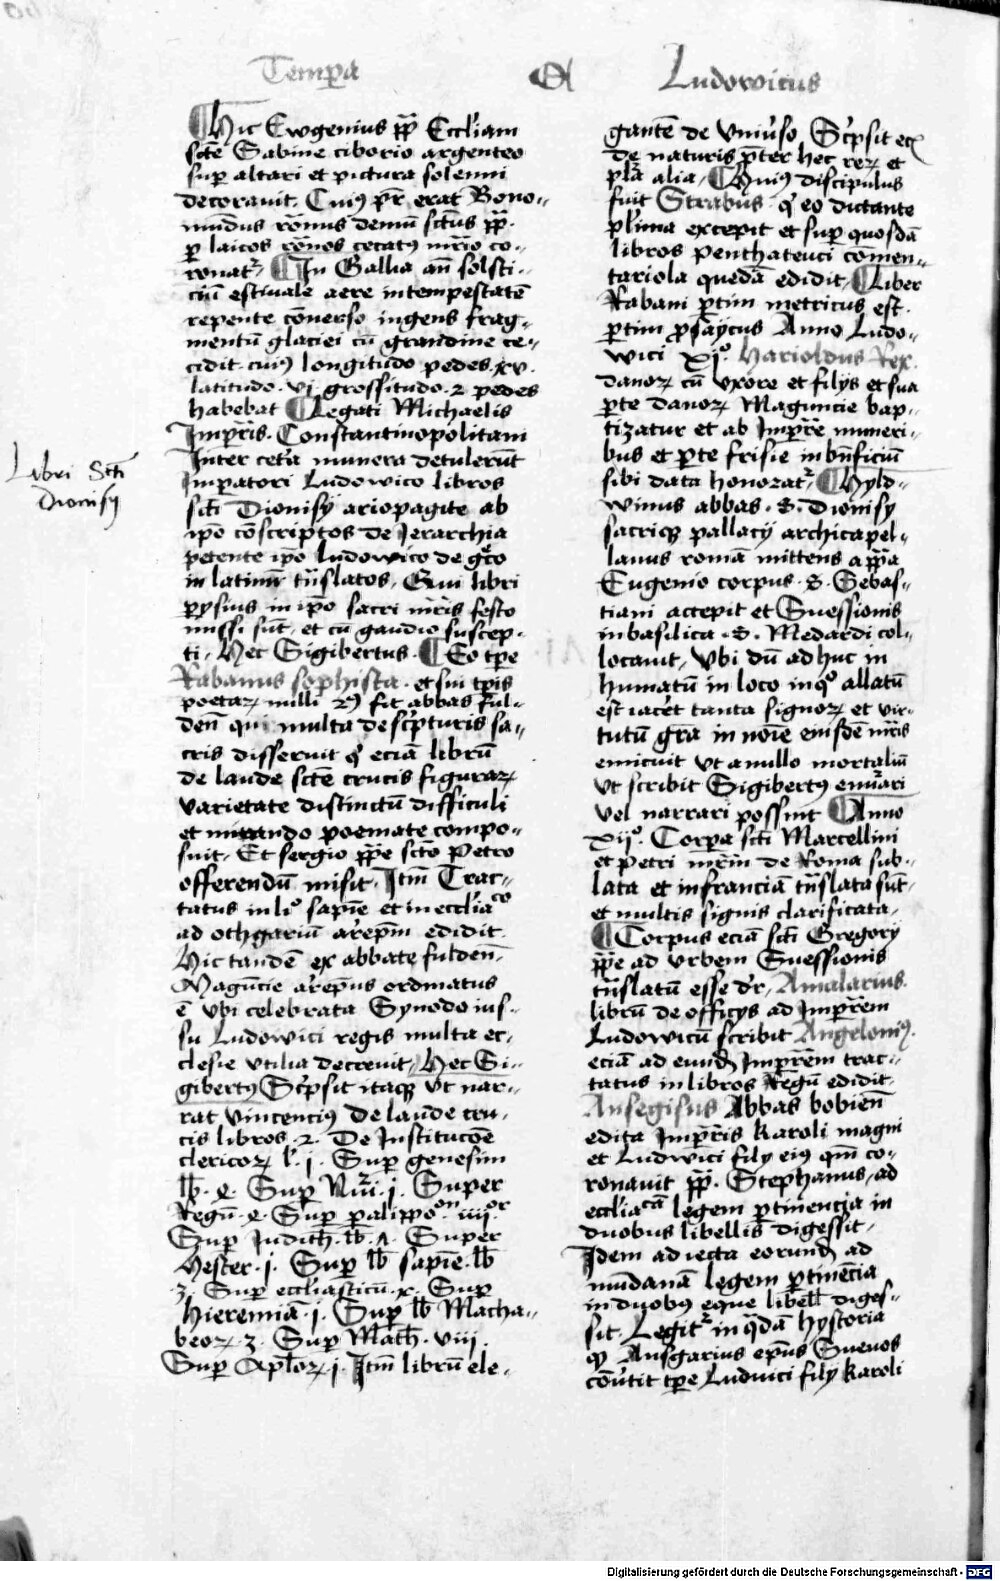 Tempa
Ludowicus
¶ Hic Ewgenius pp̄ Eccliam
scte Sabine ciborio argenteo
sup altari et pictura solenni
decorauit. Cuiꝰ pr̄ erat Bono-
mundus rōnus demū sctūs pp̄.
ꝑ laicos rōnos cecatꝰ mr̄io co-
ronatr̄ ¶ In Gallia an̄ solsti-
ciū estiuale aere in tempestatē
repente cōuerso ingens frag-
mentū glaciei cū grandine ce-
cidit. cuiꝰ longitudo pedes .xv.
latitudo .vj. grossitudo .2. pedes
habebat ¶ Legati Michaelis
Impr̄is. Constantinopolitani
Inter cetā munera detulerūt
Imperatori Ludowico libros
scti Dionisij ariopagite ab
ip̄o cōscriptos de Jerarchia
petente ip̄o Ludowico de gͦco
in latinū trn̄slatos, Qui libri
ꝑysius in ip̄o sacri mr̄is festo
missi sūt, et cū gaudio suscep-
ti, Hec Sigibertus. ¶ Eo tꝑe
Rabanus sophista. et sui tꝑis
poetaꝝ nulli 2ꝰ fit abbas ful-
den̄ qui multa de scpturis sa-
cris disseruit qͥ eciā librū
de laude scte crucis figuraꝝ
varietate distinctū difficili
et mirando poemate compo-
suit, Et sergio pp̄e scto Petro
offerendū misit. Itm̄ Trac-
tatus in liͦ sapīe et in eccliāco
ad othgariū arēpm edidit.
Hic tandē ex abbate fulden̄,
Magūcie arēpus ordinatus
ē vbi celebrata Synodo ius-
su Ludowici regis multa ec-
clesie vtilia decreuit, Hec Si-
gibertꝰ Scpsit itaqꝫ vt nar-
rat vincenciꝰ de laude cru-
cis libros .2. De Institucōe
clericoꝝ l'. j. Sup genesim
lb̄. Sup Nūi. j. Super
Regū. Sup ꝑalippoͦn. iiijor
Sup Judith. lb̄. 1. Super
Hester. j. Sup lb̄ sapīe. lb̄
3. Sup eccliasticū .x. Sup
Hieremiā. j. Sup lb̄ Macha-
beoꝝ. 3. Sup Math̄. viij.
Sup Apl̄oꝝ j. Itm̄ librū ele-
Libri Scti
Dionisij
gantē de vniūso Scpsit eciā
de naturis pter hec reꝝ et
pl̄a alia, ¶ Huiꝰ discipulus
fuit Strabus. qͥ eo dictante
pl'ima excepit et sup quosdā
libros penthateuci cōmen-
tariola quedā edidit, ¶ Liber
Rabani ꝑtim metricus est.
ꝑtim ꝓsaycus Anno Ludo-
wici xjͦ. Harioldus Rex
danoꝝ cū vxore et filijs et sua
ꝑte danoꝝ Maguncie bap-
tizatur et ab Impr̄re muneri-
bus et ꝑte frisie in bn̄ficiū
sibi data honoratr̄ ¶ Hyld-
winus abbas .S. Dionisy
sacriqꝫ pallacij archicapel-
lanus romā mittens a pp̄a
Eugenio corpus .S. Sebas-
tiani accepit et Suessionis
in basilica .S. Medardi col-
locauit, Vbi dū ad huc in
humatū in loco in qͦ allatū
est iacēt tanta signoꝝ et vir-
tutū grā in noīe eiusdē mr̄is
emicuit vt a nullo mortaliū
vt scribit Sigibertꝰ enuīari
vel narrari possint ¶ Anno
xijͦ. Corpa scti Marcellini
et petri mr̄im de Roma sub-
lata et in franciā trn̄slata sūt
et multis signis clarificata,
¶ Corpus eciā scti Gregorij
pp̄e ad vrbem Suessionis
trn̄slatū esse dr̄, Amalarius.
librū de officijs ad Impr̄rem
Ludowicū scribit Angelomꝰ.
eciā ad eund̄ Impr̄rēm trac-
tatus in libros Regū edidit.
Ansegisus Abbas bobien̄
edita Impr̄ris karoli magni
et Ludwīci filij eiꝰ qm̄ co-
ronauit pp̄. Stephanus, ad
eccliācā legem ꝑtinencia in
duobus libellis digessit,
Idem adiecta eorund̄ ad
mūdanā legem ꝑtinēcia
in duobꝰ eque libell̄ diges-
sit. Legitr̄ in qͣdā hystoria
qͥ Ansgarius ep̄us Sueuos
cōuertit tꝑe Luduici filij karoli